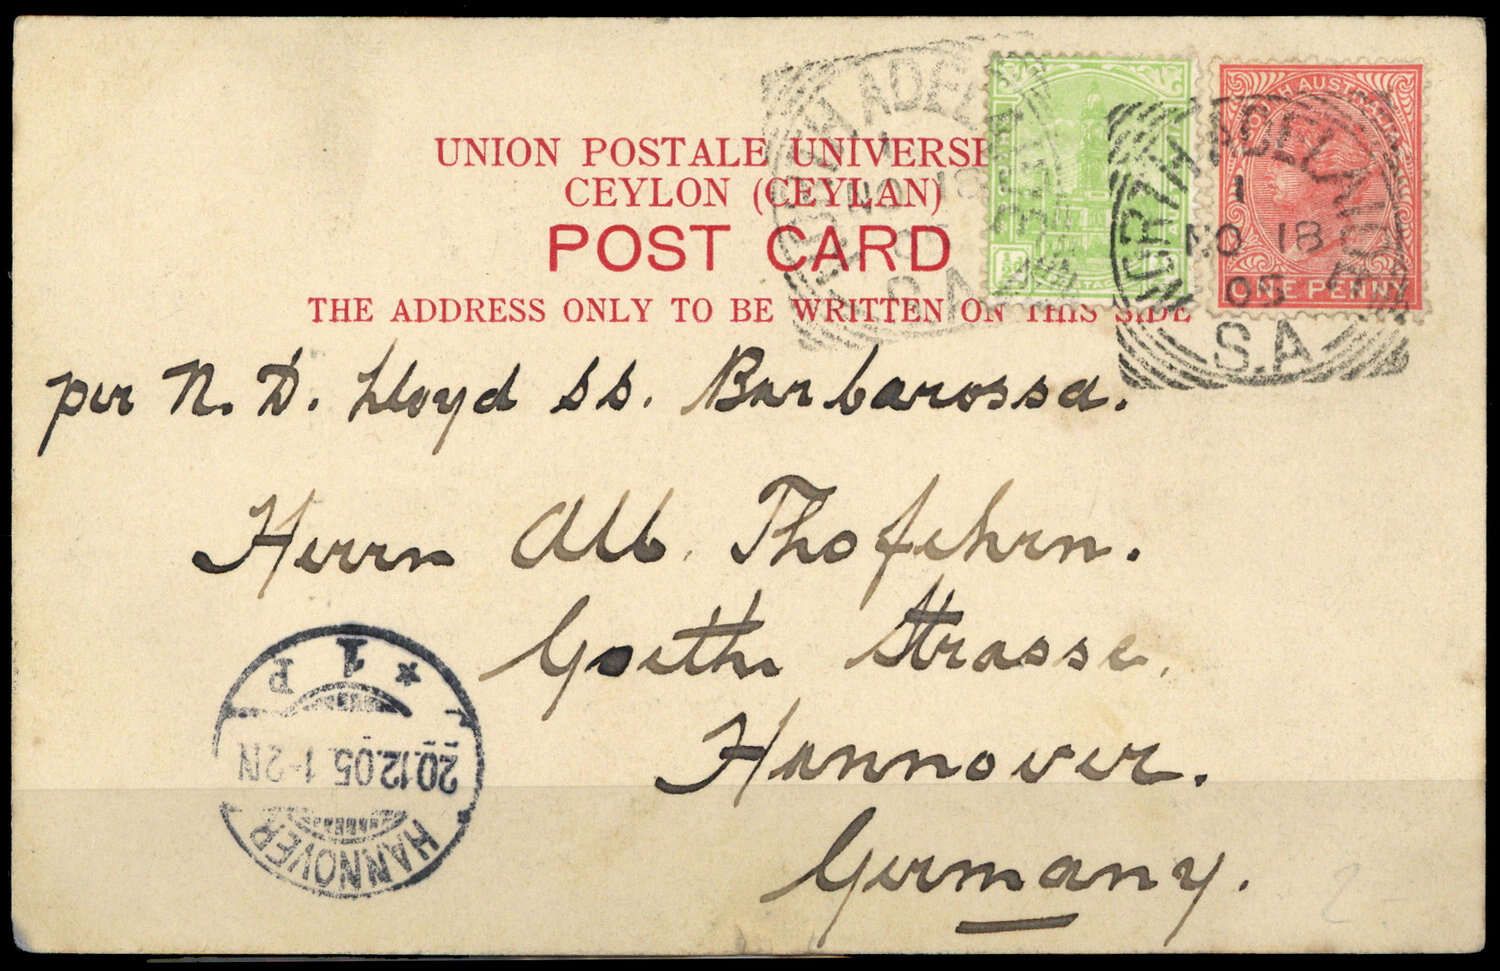 UNION POSTALE UNIVERSE
CEYLON (CEYLAN)
POST CARD
THE ADDRESS ONLY TO BE WRITTEN ON THIS SIDE
SOUTH AUSTRALIA
ONE PENNY
NORTH ADELAIDE
1
NO 18
05
S.A
NORTH ADEL
NO 18
S.A
per N. D. Lloyd ss. Barbarossa.
Herrn Alb. Thofehrn.
Goethe Strasse.
Hannover.
Germany.
HANNOVER
20.12.05. 1-2N
* 1 P
2-